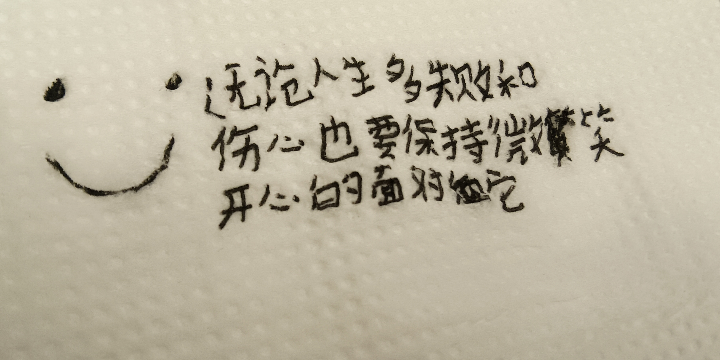 无论人生多失败和
伤心也要保持微笑
开心的面对它